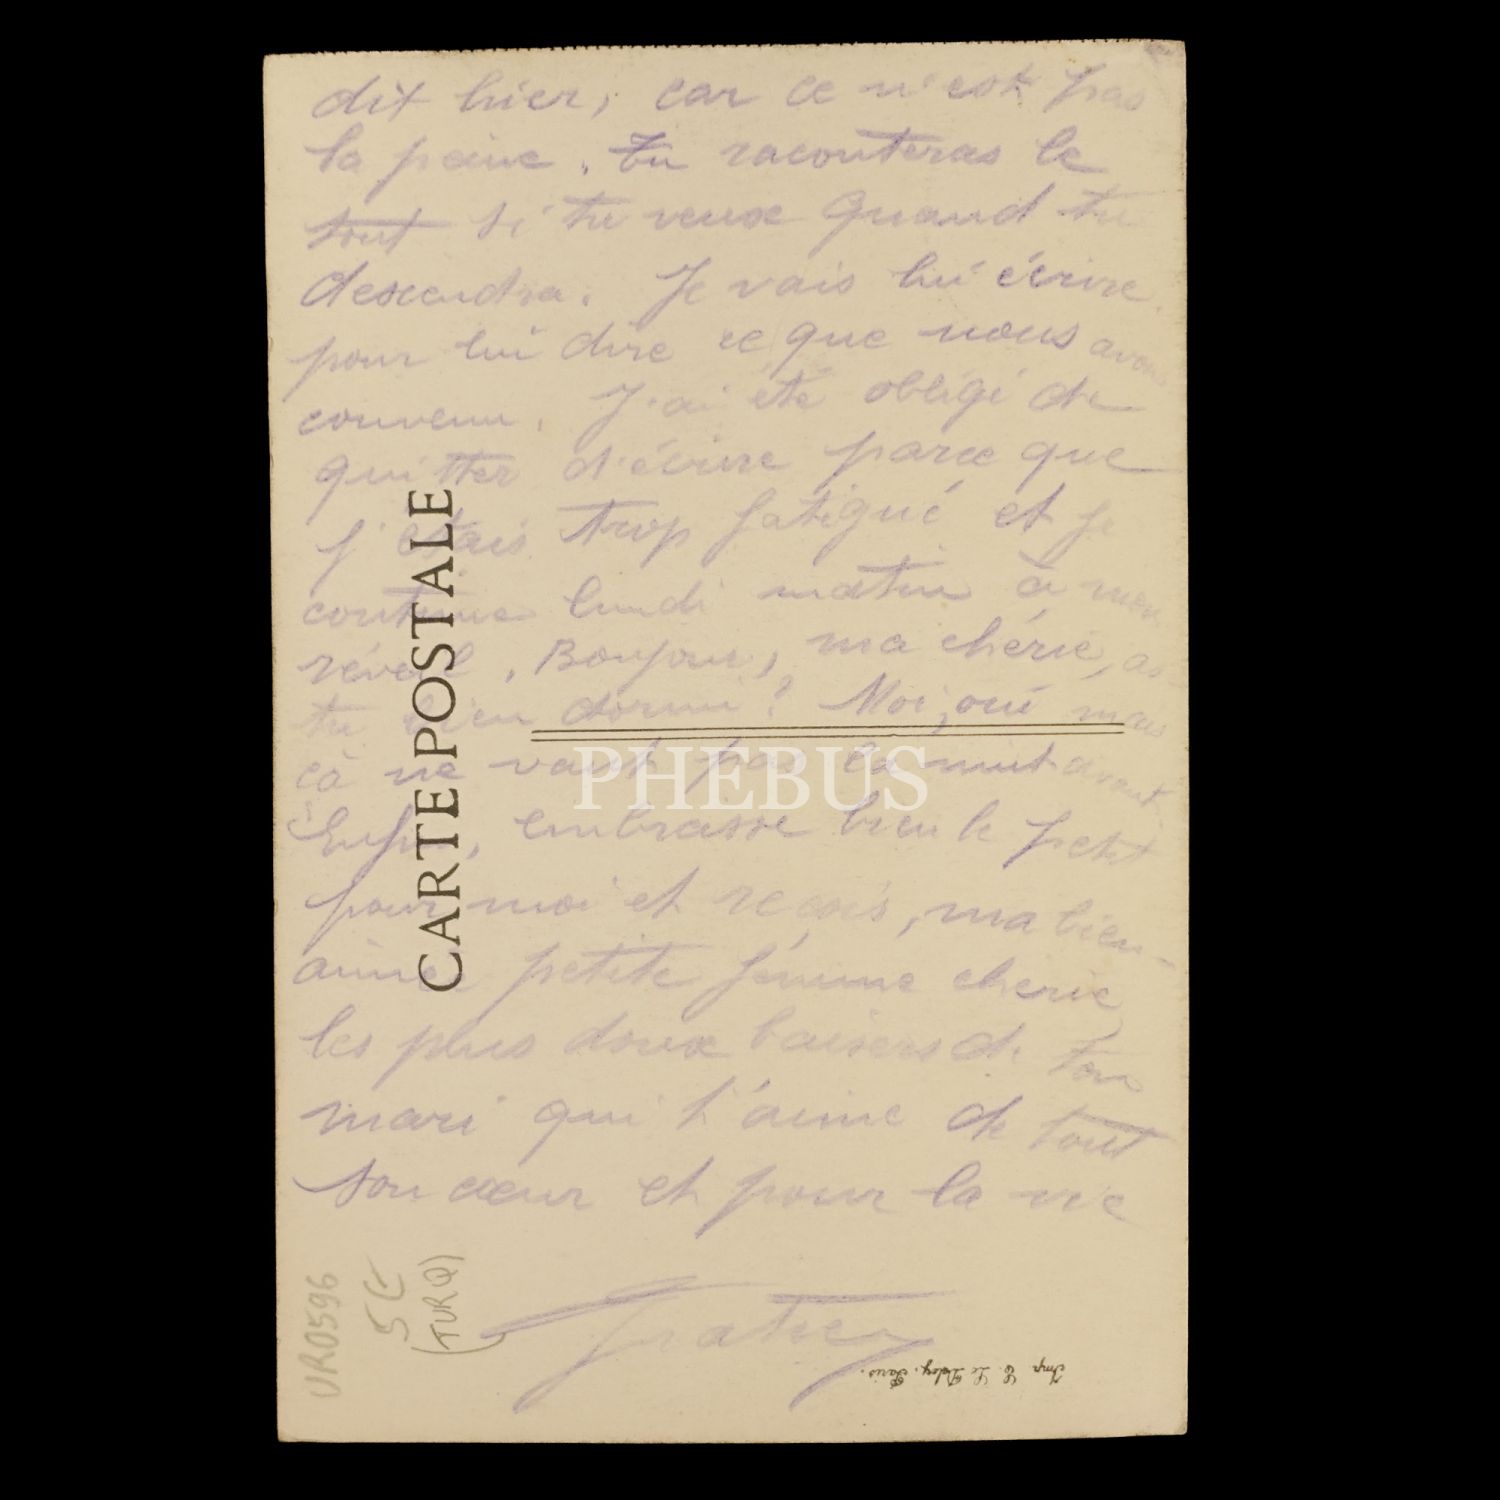 dit hier, car ce n'est pas
la peine. Tu raconteras le
tout si tu veux quand tu
descendra. Je vais lui écrire
pour lui dire ce que nous avons
convenu. J'ai été obligé de
quitter d'écrire parce que
j'étais trop fatigué et je
continue lundi matin à mon
réveil. Bonjour, ma chérie, as
tu bien dormi? Moi, oui mais
çà ne vaut pas la nuit avant
Enfin, embrasse bien le petit
pour moi et reçois, ma bien-
aimée petite femme cherie
les plus doux baisers de ton
mari qui t'aime de tout
son cœur et pour la vie
CARTE POSTALE
PHEBUS
UR0596
5€
(TURQ)
Imp. E. Le Deley, Paris.